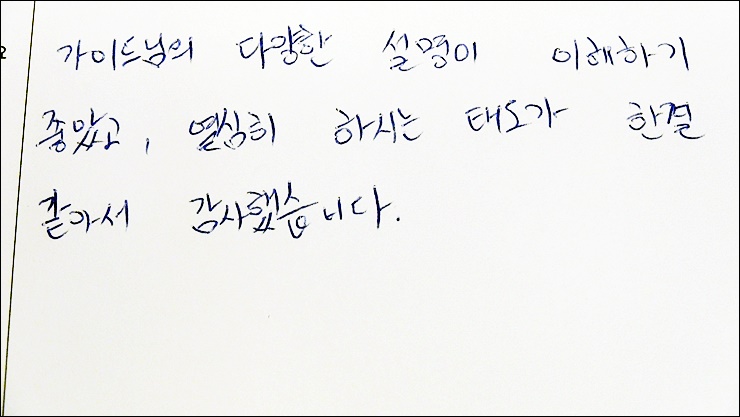 가이드님의 다양한 설명이 이해하기
좋았고, 열심히 하시는 태도가 한결
같아서 감사했습니다.